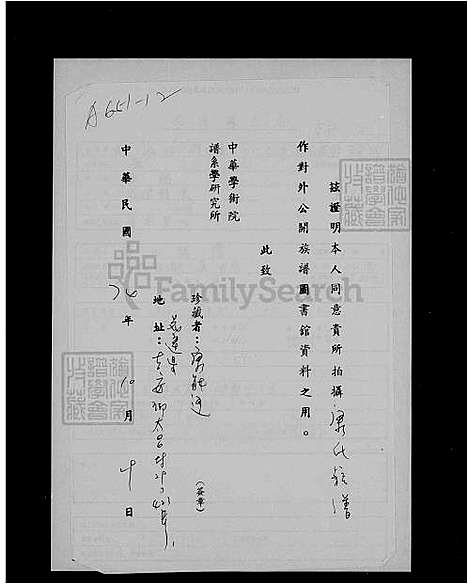 A651-12
茲證明本人同意貴所拍攝康氏族譜
作對外公開族譜圖書館資料之用。
此致
中華學術院
譜系學研究所
珍藏者：康
(簽章)
地址：花蓮県吉安鄉太昌村
中華民國74年10月 日
FamilySearch